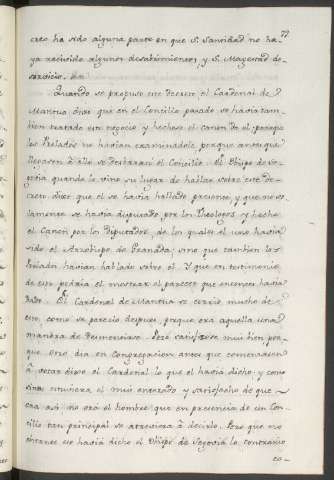 77
creo ha sido alguna parte en que S. Santidad no ha-
ya recivido algunos desabrimientos, y S. Magestad de-
servicio.
Quando se propuso este Decreto el Cardenal de
Mantua dixo que en el Concilio pasado se havia tam-
bien tratado este negocio y hechose el canon de el porque
los Prelados no havian examinadole porque antes que
llegasen à ello se deshizo el Concilio. El Obispo de Se-
govia quando le vino su lugar de hablar sobre este de-
creto dixo que el se havia hallado presente, y que no so-
lamente se havia disputado por los Theologos, y hecho
el Canon por los Diputados, de los quales el uno havia
sido el Arzobispo de Granada; sino que tambien los
Prelados havian hablado sobre el. Y que en testimonio
de esto podria el mostrar el parecer que entonces havia
dado. El Cardenal de Mantua se corrió mucho de
esto, como se parecio despues, porque era aquella una
manera de desmentirse. Pero satisfizose mui bien por-
que otro dia en Congregacion antes que comenzasen
à votar dixo el Cardenal lo que el havia dicho; y como
sino estuviera el mui enterado y satisfecho de que
era asi no era el hombre que en presencia de un Con-
cilio tan principal se atreviera à decirlo. Pero que no
obstante esto havia dicho el Obispo de Segovia lo contrario